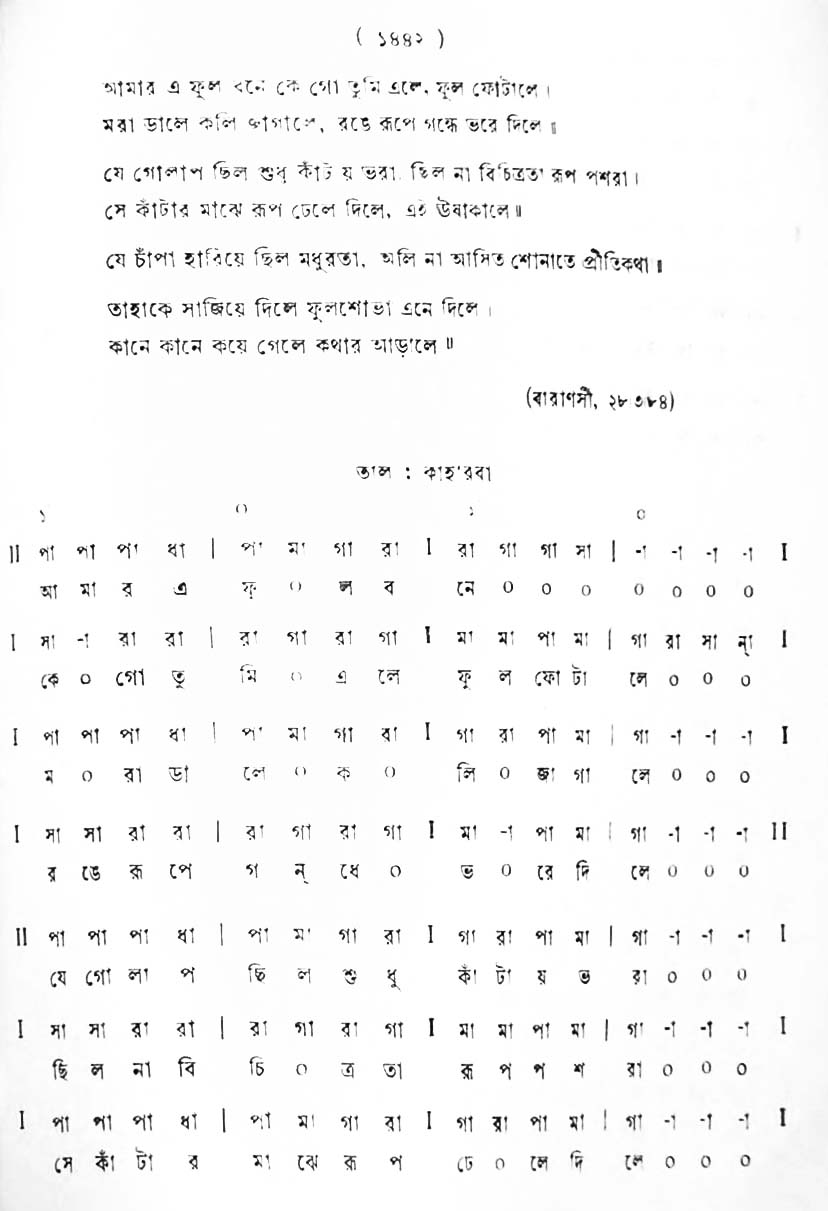 ( ১৪৪২ )
আমার এ ফুল বনে কে গো তুমি এলে, ফুল ফোটালে।
মরা ডালে কলি জাগালে, রঙে রূপে গন্ধে ভরে দিলে॥
যে গোলাপ ছিল শুধু কাঁটায় ভরা, ছিল না বিচিত্রতা রূপ পশরা।
সে কাঁটার মাঝে রূপ ঢেলে দিলে, এই ঊষাকালে॥
যে চাঁপা হারিয়ে ছিল মধুরতা, অলি না আসিত শোনাতে প্রীতিকথা॥
তাহাকে সাজিয়ে দিলে ফুলশোভা এনে দিলে।
কানে কানে কয়ে গেলে কথার আড়ালে॥
(বারাণসী, ২৮৩৮৪)
তাল : কাহারবা
১ ০ ১ ০
II পা পা পা ধা | পা মা গা রা I রা গা গা সা | -া -া -া -া I
আ মা র এ ফু ০ ল ব নে ০ ০ ০ ০ ০ ০ ০
I সা -া রা রা | রা গা রা গা I মা মা পা মা | গা রা সা ন্া I
কে ০ গো তু মি ০ এ লে ফু ল ফো টা লে ০ ০ ০
I পা পা পা ধা | পা মা গা রা I গা রা পা মা | গা -া -া -া I
ম ০ রা ডা লে ০ ক ০ লি ০ জা গা লে ০ ০ ০
I সা সা রা রা | রা গা রা গা I মা -া পা মা | গা -া -া -া II
র ঙে রূ পে গ ন্ ধে ০ ভ ০ রে দি লে ০ ০ ০
II পা পা পা ধা | পা মা গা রা I গা রা পা মা | গা -া -া -া I
যে গো লা প ছি ল শু ধু কাঁ টা য় ভ রা ০ ০ ০
I সা সা রা রা | রা গা রা গা I মা মা পা মা | গা -া -া -া I
ছি ল না বি চি ০ ত্র তা রূ প প শ রা ০ ০ ০
I পা পা পা ধা | পা মা গা রা I গা রা পা মা | গা -া -া -া I
সে কাঁ টা র মা ঝে রূ প ঢে ০ লে দি লে ০ ০ ০